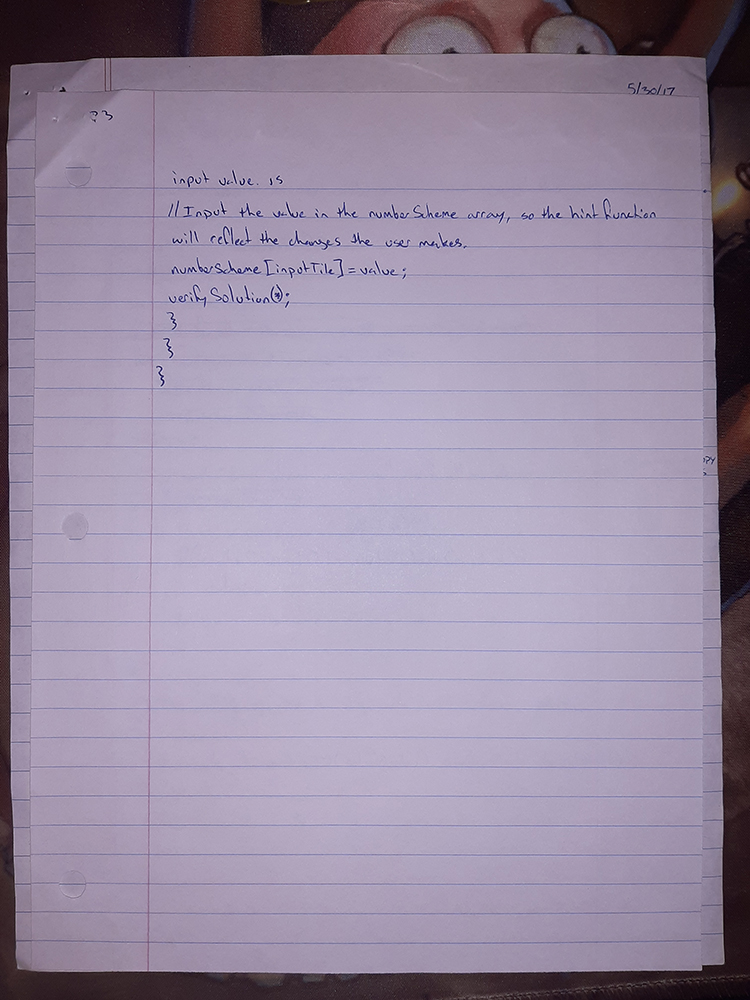 5/30/17
P3
input value. is
//Input the value in the numberScheme array, so the hint function
will reflect the changes the user makes.
numberScheme[inputTile]=value;
verifySolution();
}
}
}